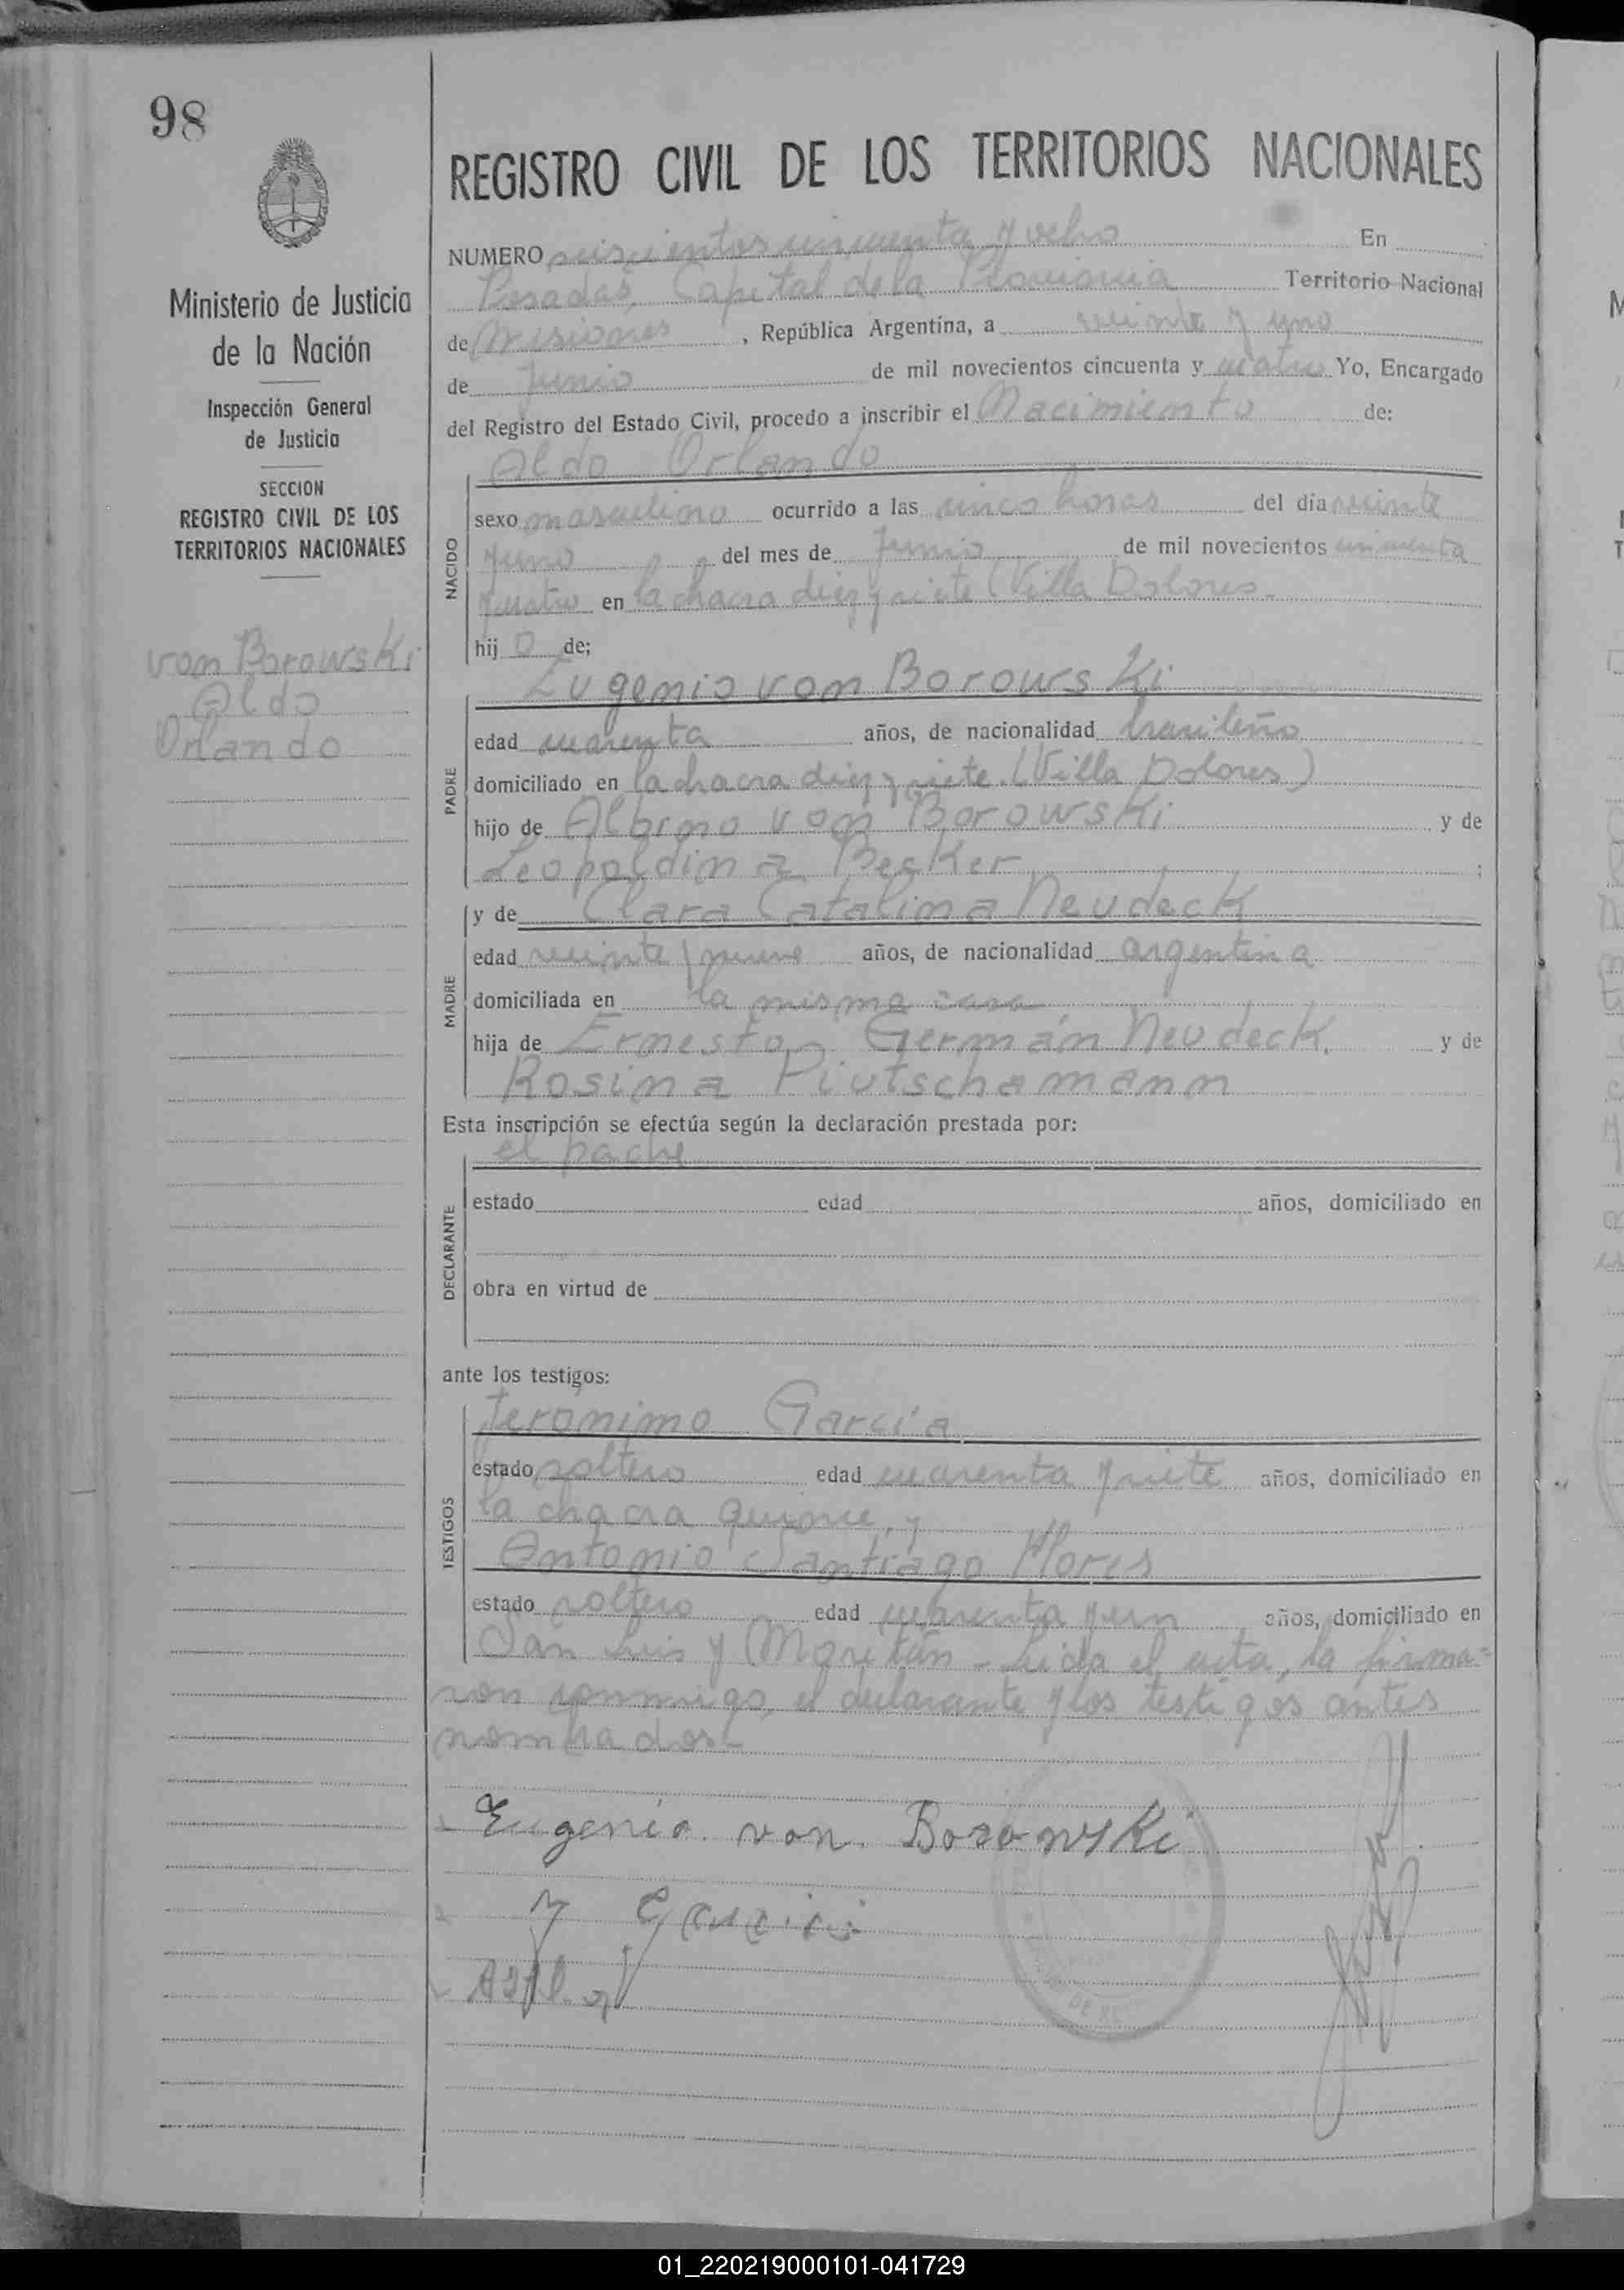 98
Ministerio de Justicia
de la Nación
Inspección General
de Justicia
SECCION
REGISTRO CIVIL DE LOS
TERRITORIOS NACIONALES
von Borowski
Aldo
Orlando
REGISTRO CIVIL DE LOS TERRITORIOS NACIONALES
NUMERO seiscientos cincuenta y ocho En
Posadas, Capital de la Provincia Territorio Nacional
de Misiones, República Argentina, a veinte y uno
de Junio de mil novecientos cincuenta y cuatro Yo, Encargado
del Registro del Estado Civil, procedo a inscribir el Nacimiento de:
Aldo Orlando
NACIDO
sexo masculino ocurrido a las cinco horas del día veinte
y uno del mes de Junio de mil novecientos cincuenta
y cuatro en la chacra diez y siete (Villa Dolores
hij o de;
Eugenio von Borowski
PADRE
edad cuarenta años, de nacionalidad brasileño
domiciliado en la chacra diez y siete. (Villa Dolores)
hijo de Albino von Borowski y de
Leopoldina Becker ;
MADRE
y de Clara Catalina Neudeck
edad veinte y nueve años, de nacionalidad argentina
domiciliada en la misma casa
hija de Ernesto Germán Neudeck, y de
Rosina Piutschamann
Esta inscripción se efectúa según la declaración prestada por:
el padre
DECLARANTE
estado edad años, domiciliado en
obra en virtud de
ante los testigos:
TESTIGOS
Jeronimo García
estado soltero edad cuarenta y siete años, domiciliado en
la chacra quince, y
Antonio Santiago Flores
estado soltero edad cuarenta y un años, domiciliado en
San Luis y Moritán - Leida el acta, la firma=
ron conmigo, el declarante y los testigos antes
nombrados
Eugenio von Borowski
J Garcia
01_220219000101-041729